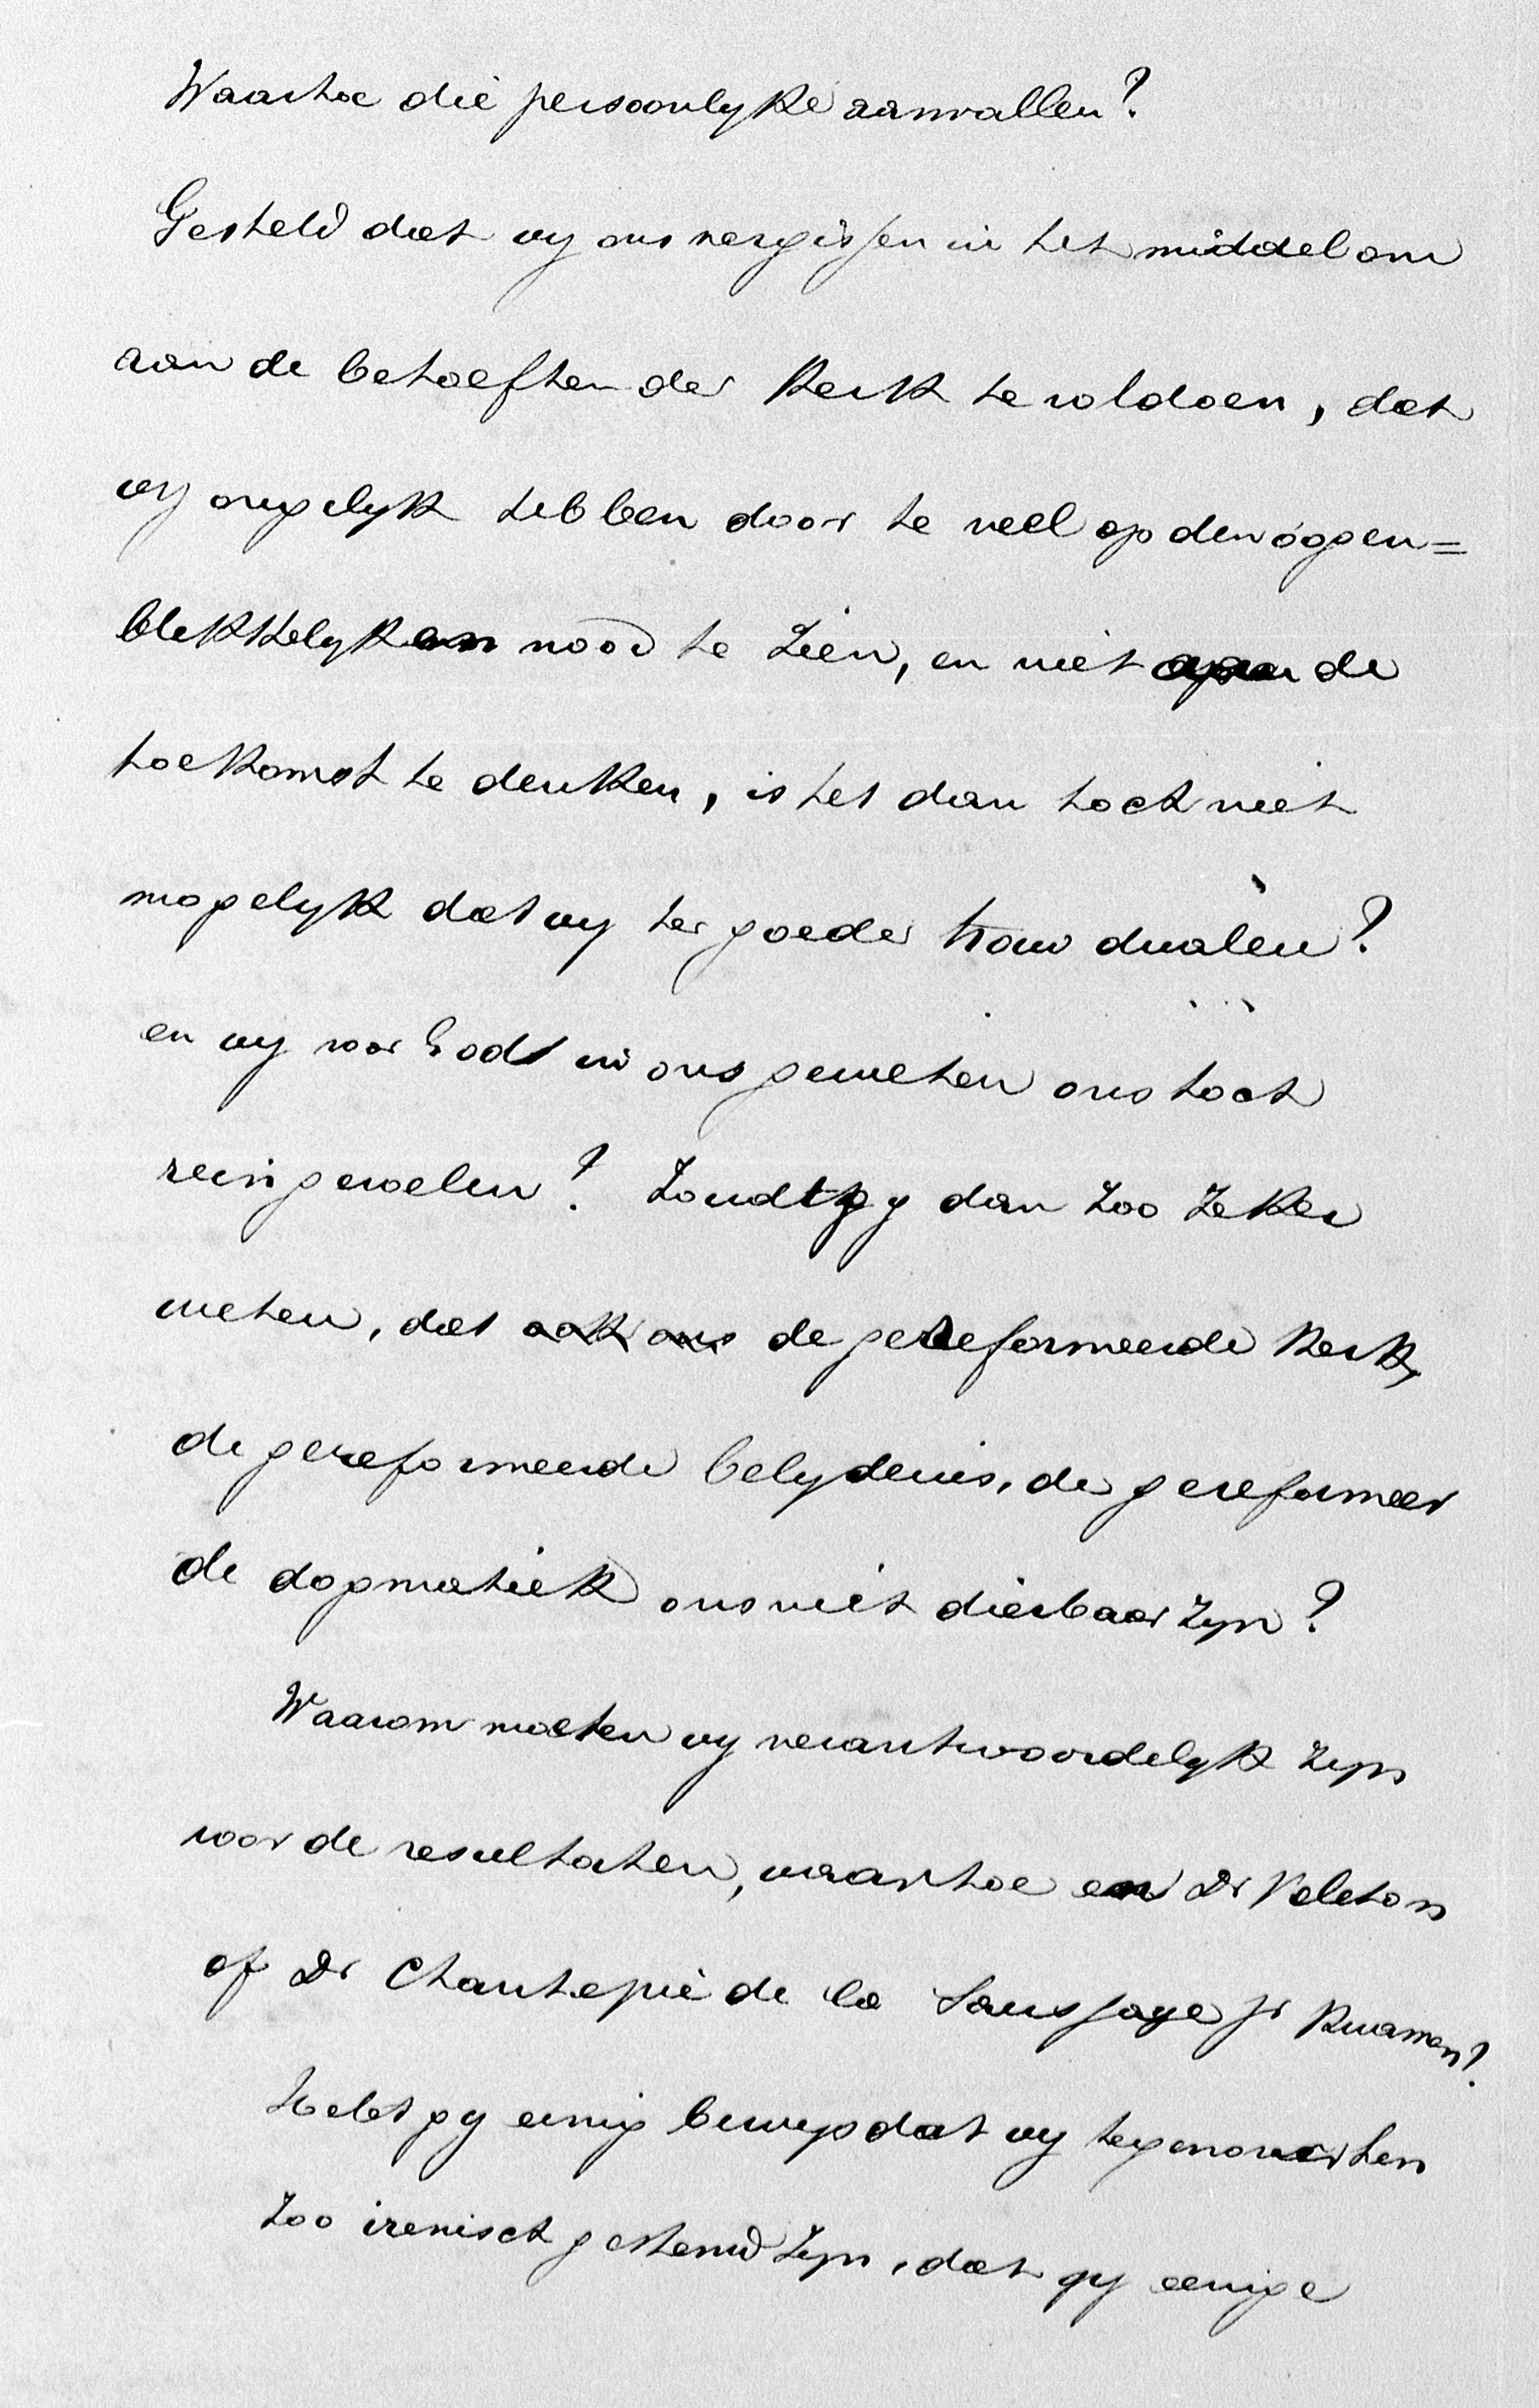 Waartoe die persoonlyke aanvallen?
Gesteld dat wy ons vergissen in het middel om
aan de behoeften der Kerk te voldoen, dat
wy ongelyk hebben door te veel op den oogen=
blikkelyken nood te zien, en niet aan de
toekomst te denken, is het dan toch niet
mogelyk dat wy ter goeder trouw dwalen?
en wy voor God in ons geweten ons toch
rein gevoelen? Zoudt gy dan zoo zeker
weten, dat ook ons de gereformeerde Kerk,
de gereformeerde belydenis, de gereformeer
de dogmatiek ons niet dierbaar zyn?
Waarom moeten wy verantwoordelyk zyn
voor de resultaten, waartoe en Dr Valeton
of Dr Chantepie de la Saussaye Jr kwamen?
Hebt gy eenig bewys dat wy tegenover hen
zoo irenisch gestemd zyn, dat gy eenige